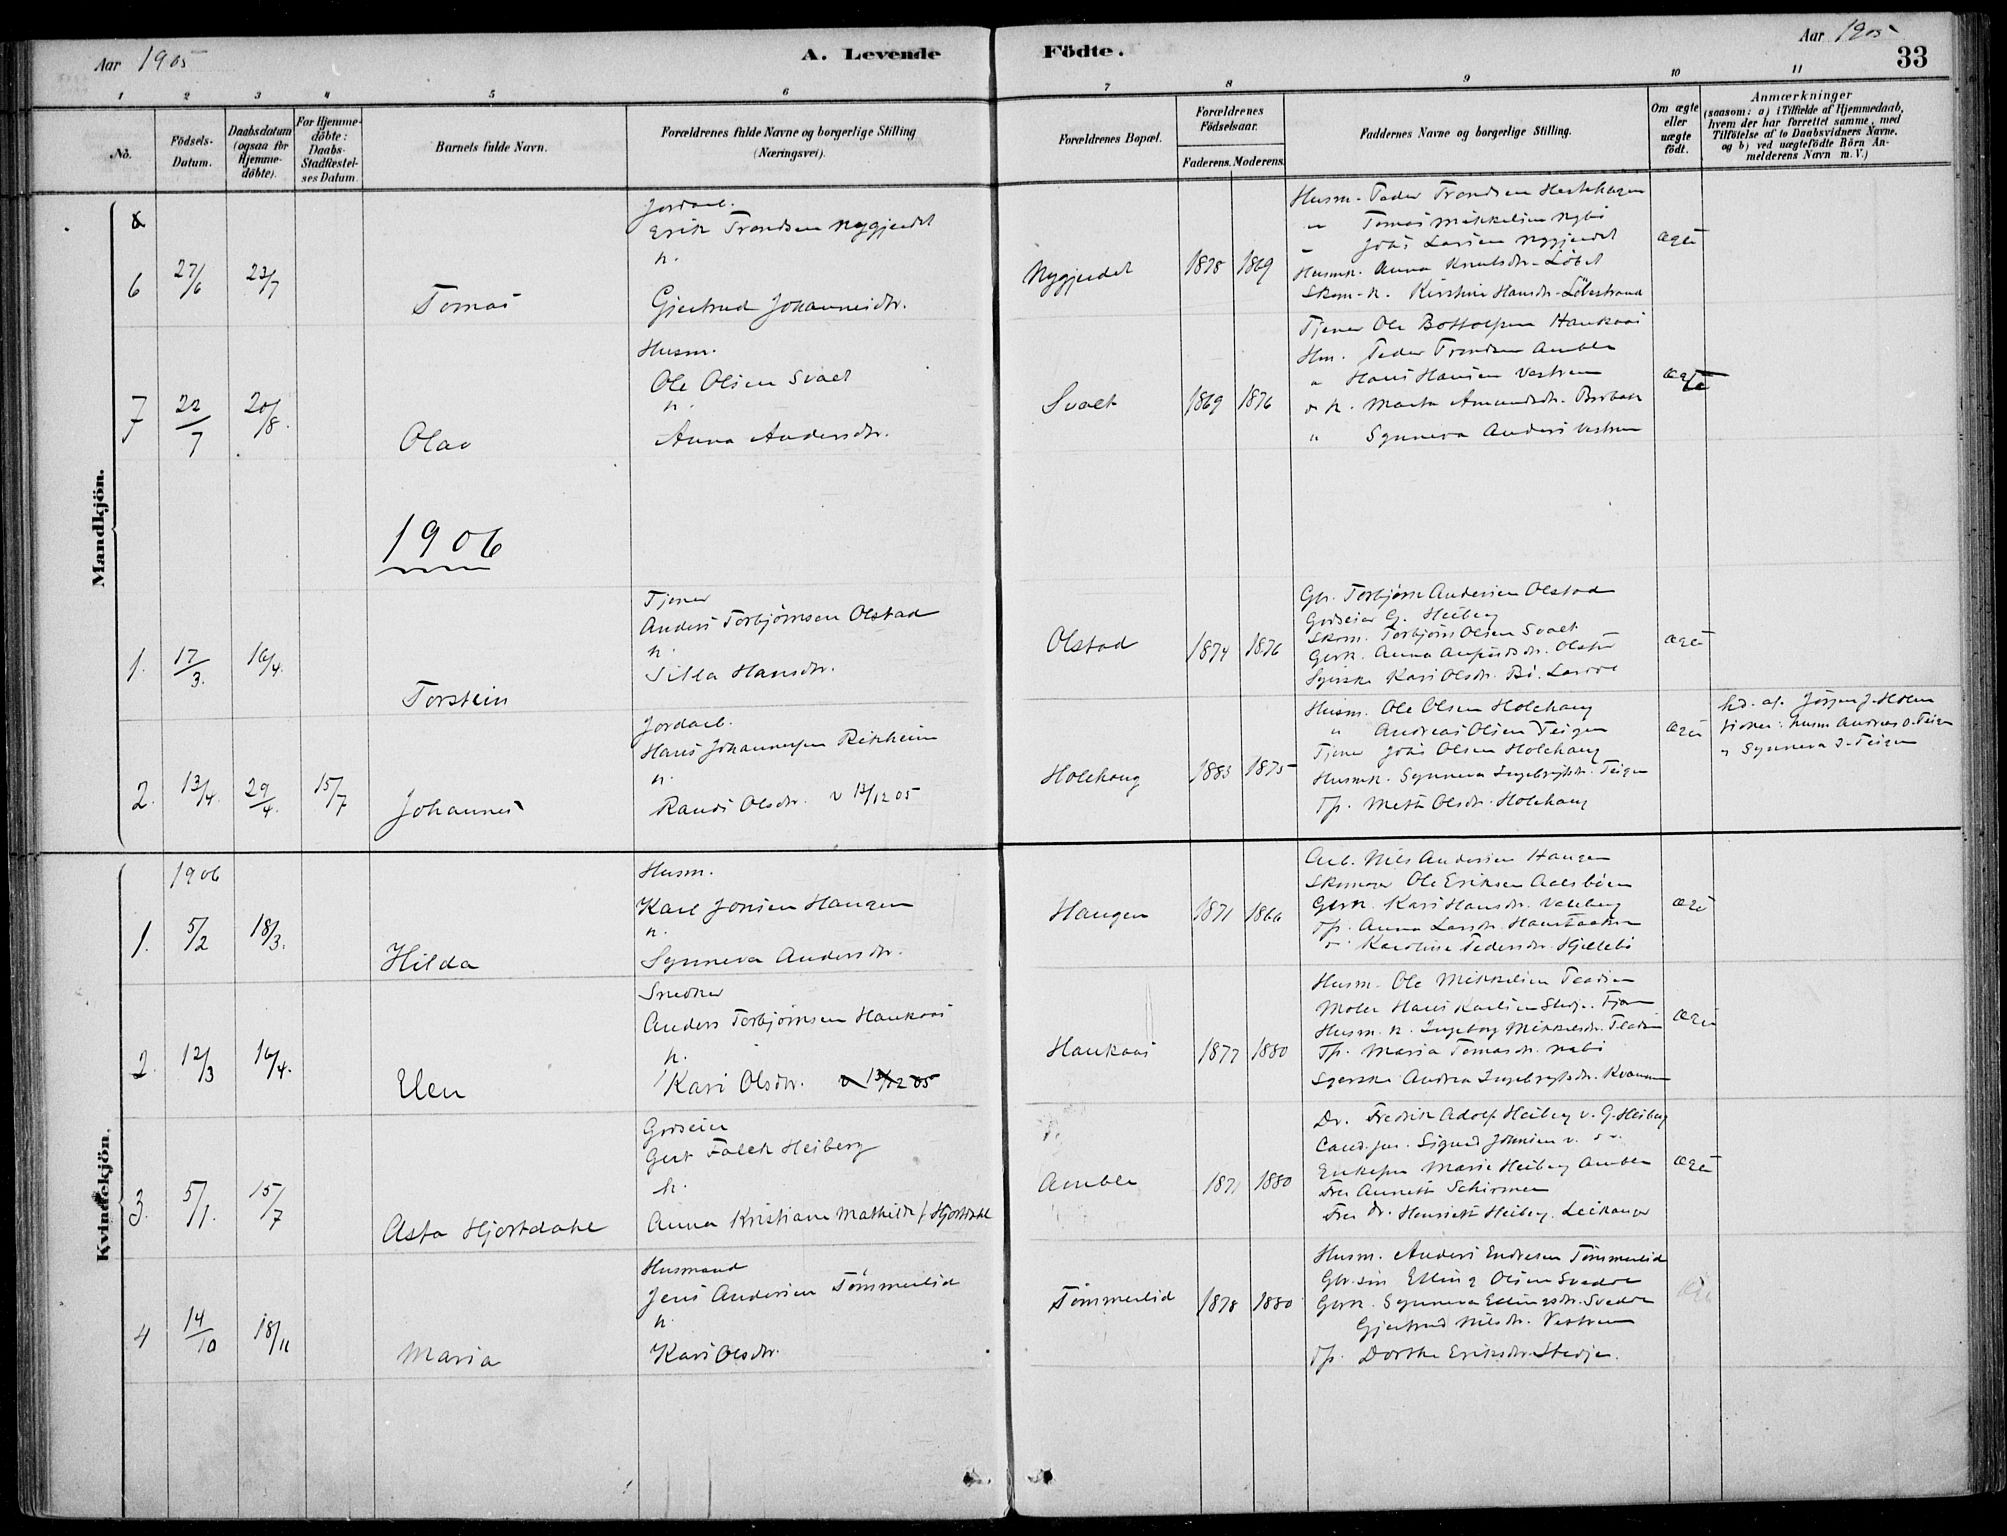 Aar 1905
A. Levende Födte.
Aar 1905
33
1 2 3 4 5 6 7 8 9 10 11
No.
Födsels-Datum.
Daabsdatum (ogsaa for Hjemme-döbte).
For Hjemme-döbte: Daabs-Stadfestel-ses Datum.
Barnets fulde Navn.
Forældrenes fulde Navne og borgerlige Stilling (Næringsvei).
Forældrenes Bopæl.
Forældrenes Födselsaar.
Faderens. Moderens.
Faddernes Navne og borgerlige Stilling.
Om ægte eller uægte födt.
Anmærkninger
(saasom: a) i Tilfælde af Hjemmedaab, hvem der har forrettet samme, med Tilföielse af to Daabsvidners Navne. og b) ved uægtefödte Börn An-melderens Navn m. V.)
Mandkjön.
6 27/6 23/7 Tomas
Jordarb.
Erik Trondsen Nygjerdet
h.
Gjertrud Johannesdtr.
Nygjerdet 1878 1869
Husm. Peder Trondsen Hestehagen
" Tomas Mikkelsen Nybö
" Joh's Larsen Nygjerdet
Husmk. Anna Knutsdtr. Löbet
Skom. k. Kirstine Hansdtr. Löbestrand
ægte
7 22/7 20/8. Olav
Husm.
Ole Olsen Svaet
h.
Anna Andersdtr.
Svaet 1869 1876
Tjener Ole Bottolfsen Haukaas
Hm. Peder Trondsen Amble
" Hans Hansen Vestrem
" k. Marta Amundsdtr.
" Synneva Anders Vestrem
ægte
1906
1. 17/3. 16/4. Torstein
Tjener
Anders Torbjörnsen Olstad
h.
Silla Hansdtr.
Olstad 1874 1876
Gbr. Torbjörn Andersen Olstad
Godseier G. Heiberg
Skom. Torbjörn Olsen Svaet
Gbrk. Anna
Syerske Kari Olsdtr. Bö.
ægte
2. 13/4. 29/4. 15/7 Johannes
Jordarb.
Hans Johannessen Rikheim
h.
Randi Olsdtr. v 13/12 05
Holehaug 1883 1875
Husm. Ole Olsen Holehaug
" Andreas Olsen Teigen
Tjener Joh's Olsen Holehaug
Husmk. Synneva Ingebrigtsdtr. Teigen
Tp. Mette Olsdtr. Holehaug
ægte
hd. af. Jörgen J. Holen
Vidner: husm Andreas O. Teigen
" Synneva I. Teigen
Kvindekjön.
1906
1. 5/2 18/3. Hilda
Husm.
Karl Jonsen Haugen
h.
Synneva Andersdtr.
Haugen 1871 1866
Arb. Nils Andersen Haugen
Skomager Ole Eriksen
Gbrk. Kari Hansdtr. Valeberg
Tp. Anna Larsdtr.
" Karoline Pedersdtr. Hjellebö
ægte
2. 12/3 16/4. Elen
Snedker
Anders Torbjörnsen Haukaas
h.
Kari Olsdtr. v 13/12 05
Haukaas 1877 1880
Husm. Ole Mikkelsen
Maler Hans Karlsen Stedje.
Husm. k. Ingeborg Mikkelsdtr.
Tp. Maria Tomasdtr.
Syerske Andrea Ingebrigtsdtr. Kvamme
ægte
3. 5/1. 15/7 Asta Hjortdahl
Godseier
Gert Falch Heiberg
h.
Anna Kristiane Mathilde f. Hjortdahl
Amble 1871 1880
Dr. Fredrik Adolf Heiberg v. G. Heiberg
Cand. jur. Sigurd Johnsen v.
Enkefru Marie Heiberg Amble
Fru Annette Schirmer
Fru dr. Henriette Heiberg. Leikanger
ægte
4 14/10 18/11 Maria
Husmand
Jens Andersen Tömmerlid
h.
Kari Olsdtr.
Tömmerlid 1878 1880
Husm. Anders Endresen Tömmerlid
Gbr. sön Elling Olsen Svedde
Gbrk. Synneva Ellingsdtr. Svedde
Gjertrud Nilsdtr. Vestrem
Tp. Dorthe Eriksdtr. Stedje.